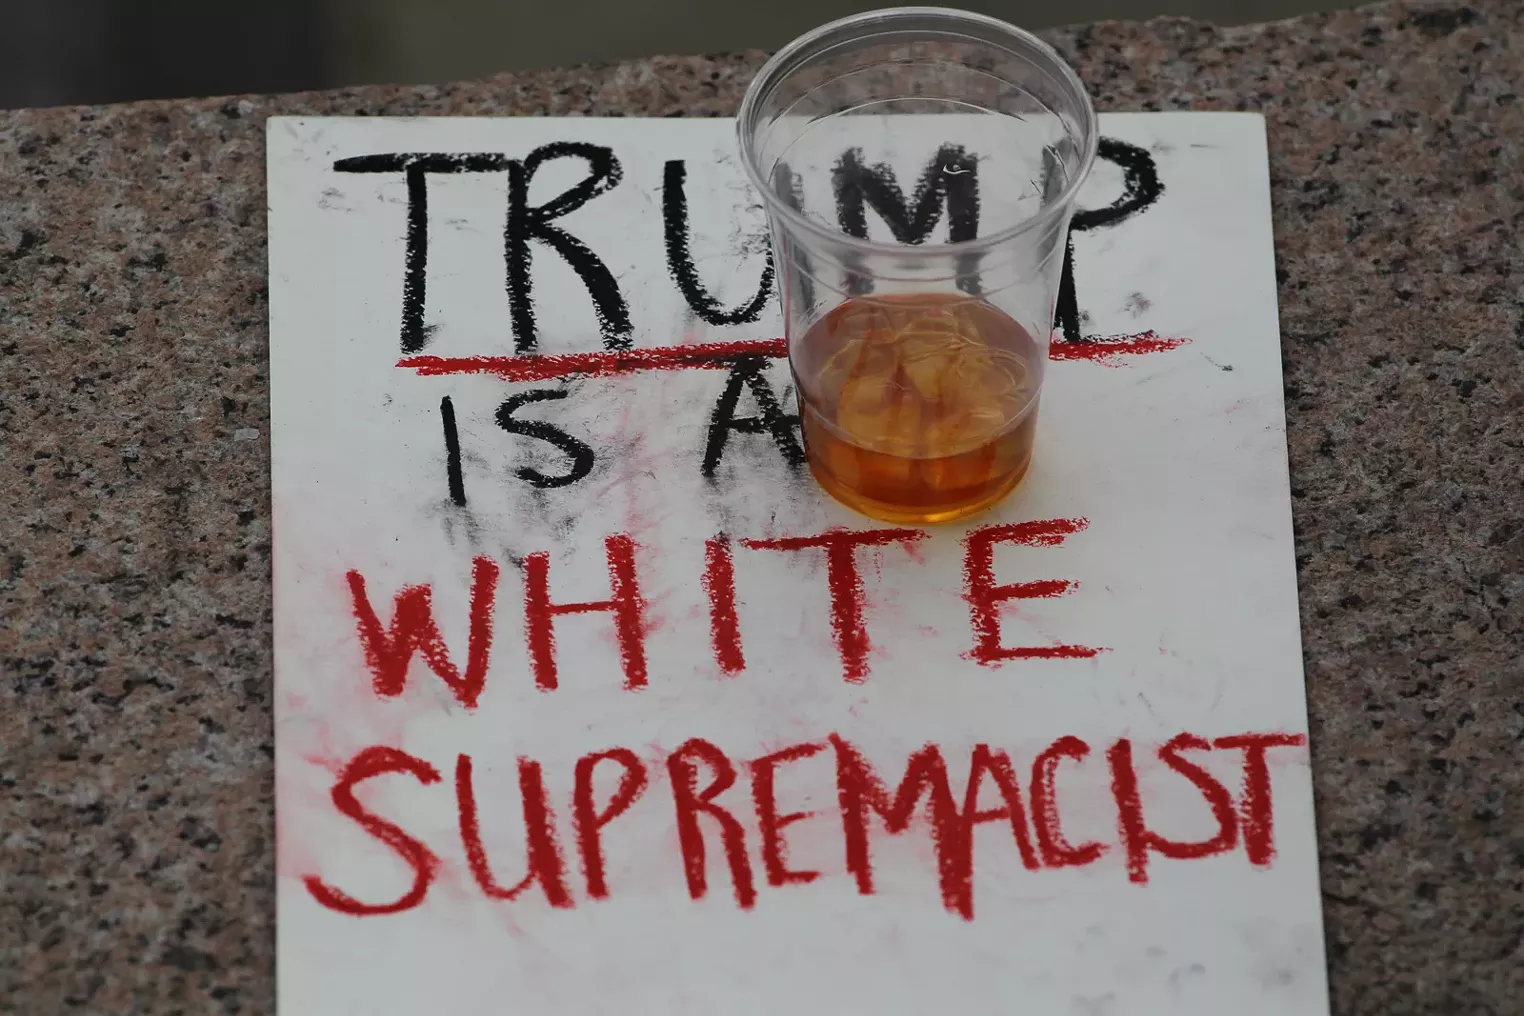 TRUMP
IS A
WHITE
SUPREMACIST